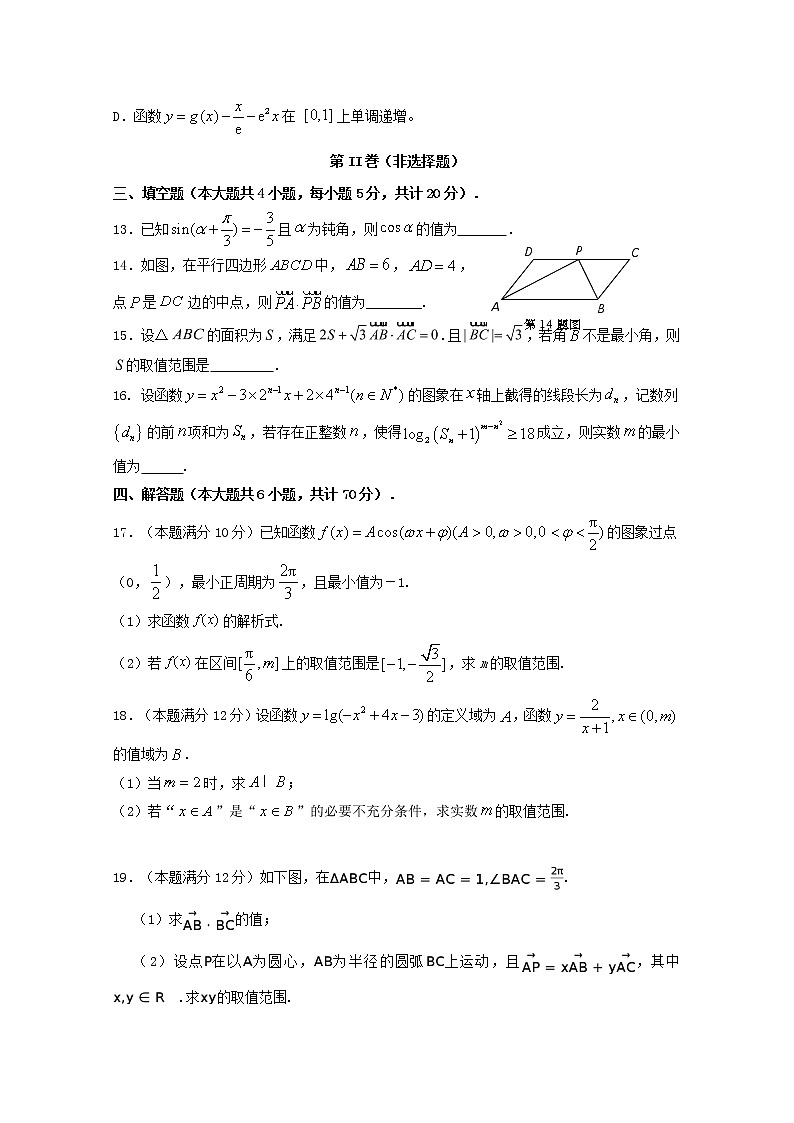 D.函数 y = g(x) − x/e − e²x 在 [0,1] 上单调递增。
第 II 卷(非选择题)
三、填空题(本大题共 4 小题,每小题 5 分,共计 20 分).
13.已知 sin(α + π/3) = −3/5 且 α 为钝角,则 cosα 的值为_______.
14.如图,在平行四边形 ABCD 中, AB = 6, AD = 4,
点 P 是 DC 边的中点,则 PA · PB 的值为________.
D P C
A B
第 14 题图
15.设△ ABC 的面积为 S,满足 2S + √3 AB · AC = 0.且 | BC |= √3,若角 B 不是最小角,则
S 的取值范围是_________.
16. 设函数 y = x² − 3×2ⁿ⁻¹x + 2×4ⁿ⁻¹(n ∈ N*) 的图象在 x 轴上截得的线段长为 dₙ,记数列
{dₙ} 的前 n 项和为 Sₙ,若存在正整数 n,使得 log₂(Sₙ + 1)^(m−n²) ≥ 18 成立,则实数 m 的最小
值为______.
四、解答题(本大题共 6 小题,共计 70 分).
17.(本题满分 10 分)已知函数 f(x) = A cos(ωx + φ)(A > 0, ω > 0, 0 < φ < π/2) 的图象过点
(0, 1/2),最小正周期为 2π/3,且最小值为-1.
(1)求函数 f(x) 的解析式.
(2)若 f(x) 在区间 [π/6, m] 上的取值范围是 [−1, −√3/2],求 m 的取值范围.
18.(本题满分 12 分)设函数 y = lg(−x² + 4x − 3) 的定义域为 A,函数 y = 2/(x+1), x ∈ (0, m)
的值域为 B.
(1)当 m = 2 时,求 A I B;
(2)若“ x ∈ A ”是“ x ∈ B ”的必要不充分条件,求实数 m 的取值范围.
19.(本题满分 12 分)如下图,在ΔABC中,AB = AC = 1,∠BAC = 2π/3.
(1)求AB→ · BC→的值;
(2)设点P在以A为圆心,AB为半径的圆弧BC上运动,且AP→ = xAB→ + yAC→,其中
x,y ∈ R .求xy的取值范围.